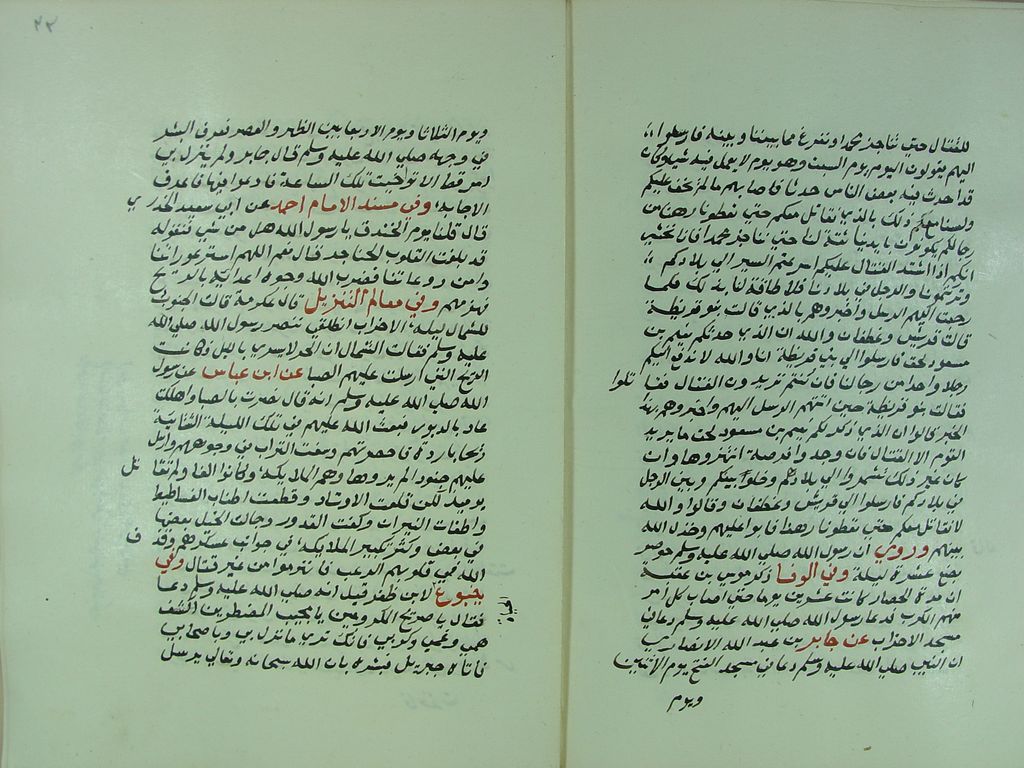 للقتال حتى نناجز محمدا ونفرغ مما بيننا وبينه فارسلوا
اليهم يقولون اليوم يوم السبت وهو يوم لا يعمل فيه شيئا وكان
قد احدث فيه بعض الناس حدثا فاصابهم ما لم يخف عليكم
ولسنا مع ذلك بالذي نقاتل معكم حتى تعطونا رهنا من
رجالكم يكونون بايدينا ثقة لنا حتى نناجز محمدا فانا نخشى
انكم اذا اشتد القتال عليكم اسرعتم السير الى بلادكم
وتركتمونا والرجل في بلادنا فلا طاقة لنا بذلك فلما
رجعت اليهم الرسل واخبروهم بالذي قالت بنو قريظة
قالت قريش وغطفان والله ان الذي حدثكم نعيم بن
مسعود لحق فارسلوا الى بني قريظة انا والله لا ندفع اليكم
رجلا واحدا من رجالنا فان كنتم تريدون القتال فقاتلوا
فقالت بنو قريظة حين انتهم الرسل اليهم واخبروهم بهذا
الخبر قالوا ان الذي ذكر لكم نعيم بن مسعود لحق ما يريد
القوم الا القتال فان وجدوا فرصة انتهزوها وان
كان غير ذلك تشمروا الى بلادهم وخلوا بينكم وبين الرجل
في بلادكم فارسلوا الى قريش وغطفان وقالوا والله
لا نقاتل معكم حتى تعطونا رهنا فابوا عليهم وخذل الله
بينهم وروي ان رسول الله صلى الله عليه وسلم حوصر
بضع عشرة ليلة وفي الوفا ذكر موسى بن عقبة
ان مدة الحصار كانت عشرين يوما حتى اصاب كل امرء
منهم الكرب فدعا رسول الله صلى الله عليه وسلم دعا في
مسجد الاحزاب عن جابر بن عبد الله الانصاري
ان النبي صلى الله عليه وسلم دعا في مسجد الفتح يوم الاثنين
ويوم
٢٢
ويوم الثلاثا ويوم الاربعا بين الظهر والعصر فعرف البشر
في وجهه صلى الله عليه وسلم قال جابر ولم ينزل بي
امر قط الا توخيت تلك الساعة فادعوا فيها فاعرف
الاجابة وفي مسند الامام احمد عن ابي سعيد الخدري
قال قلنا يوم الخندق يا رسول الله هل من شي نقوله
قد بلغت القلوب الحناجر قال نعم اللهم استر عوراتنا
وامن روعاتنا فضرب الله وجوه اعدائك بالريح
فهزمهم وفي معالم التنزيل قال عكرمة قالت الجنوب
للشمال ليلة الاحزاب انطلقي ننصر رسول الله صلى الله
عليه وسلم فقالت الشمال ان الحر لا يسري بالليل وكانت
الريح التي ارسلت عليهم الصبا عن ابن عباس عن رسول
الله صلى الله عليه وسلم انه قال نصرت بالصبا واهلكت
عاد بالدبور فبعث الله عليهم في تلك الليلة الشاتية
ريحا باردة فاحصرتهم وسفت التراب في وجوههم وارسل
عليهم جنودا لم يروها وهم الملايكة وكانوا الفا ولم تقاتل
يوميذ لكن قلعت الاوتاد وقطعت اطناب الفساطيط
واطفات النيران وكفت القدور وجالت الخيل بعضها
في بعض وكثر تكبير الملايكة في جوانب عسكرهم وقذف
الله في قلوبهم الرعب فانهزموا من غير قتال وفي
ينبوع الحياة لابن ظفر قيل انه صلى الله عليه وسلم دعا
فقال يا صريخ المكروبين يا مجيب المضطرين اكشف
همي وغمي وكربي فانك ترى ما نزل بي وباصحابي
فاتاه جبريل فبشره بان الله سبحانه وتعالى يرسل